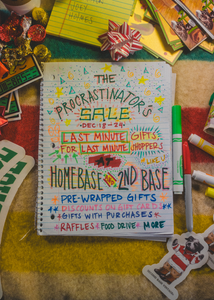 THE
PROCRASTINATOR'S
SALE
DEC · 18 - 24
LAST MINUTE GIFTS
FOR LAST MINUTE SHOPPERS
LIKE U
AT
HOMEBASE 2ND BASE
PRE-WRAPPED GIFTS
DISCOUNTS ON GIFT CARDS
+ GIFTS WITH PURCHASES
+ RAFFLES + FOOD DRIVE + MORE